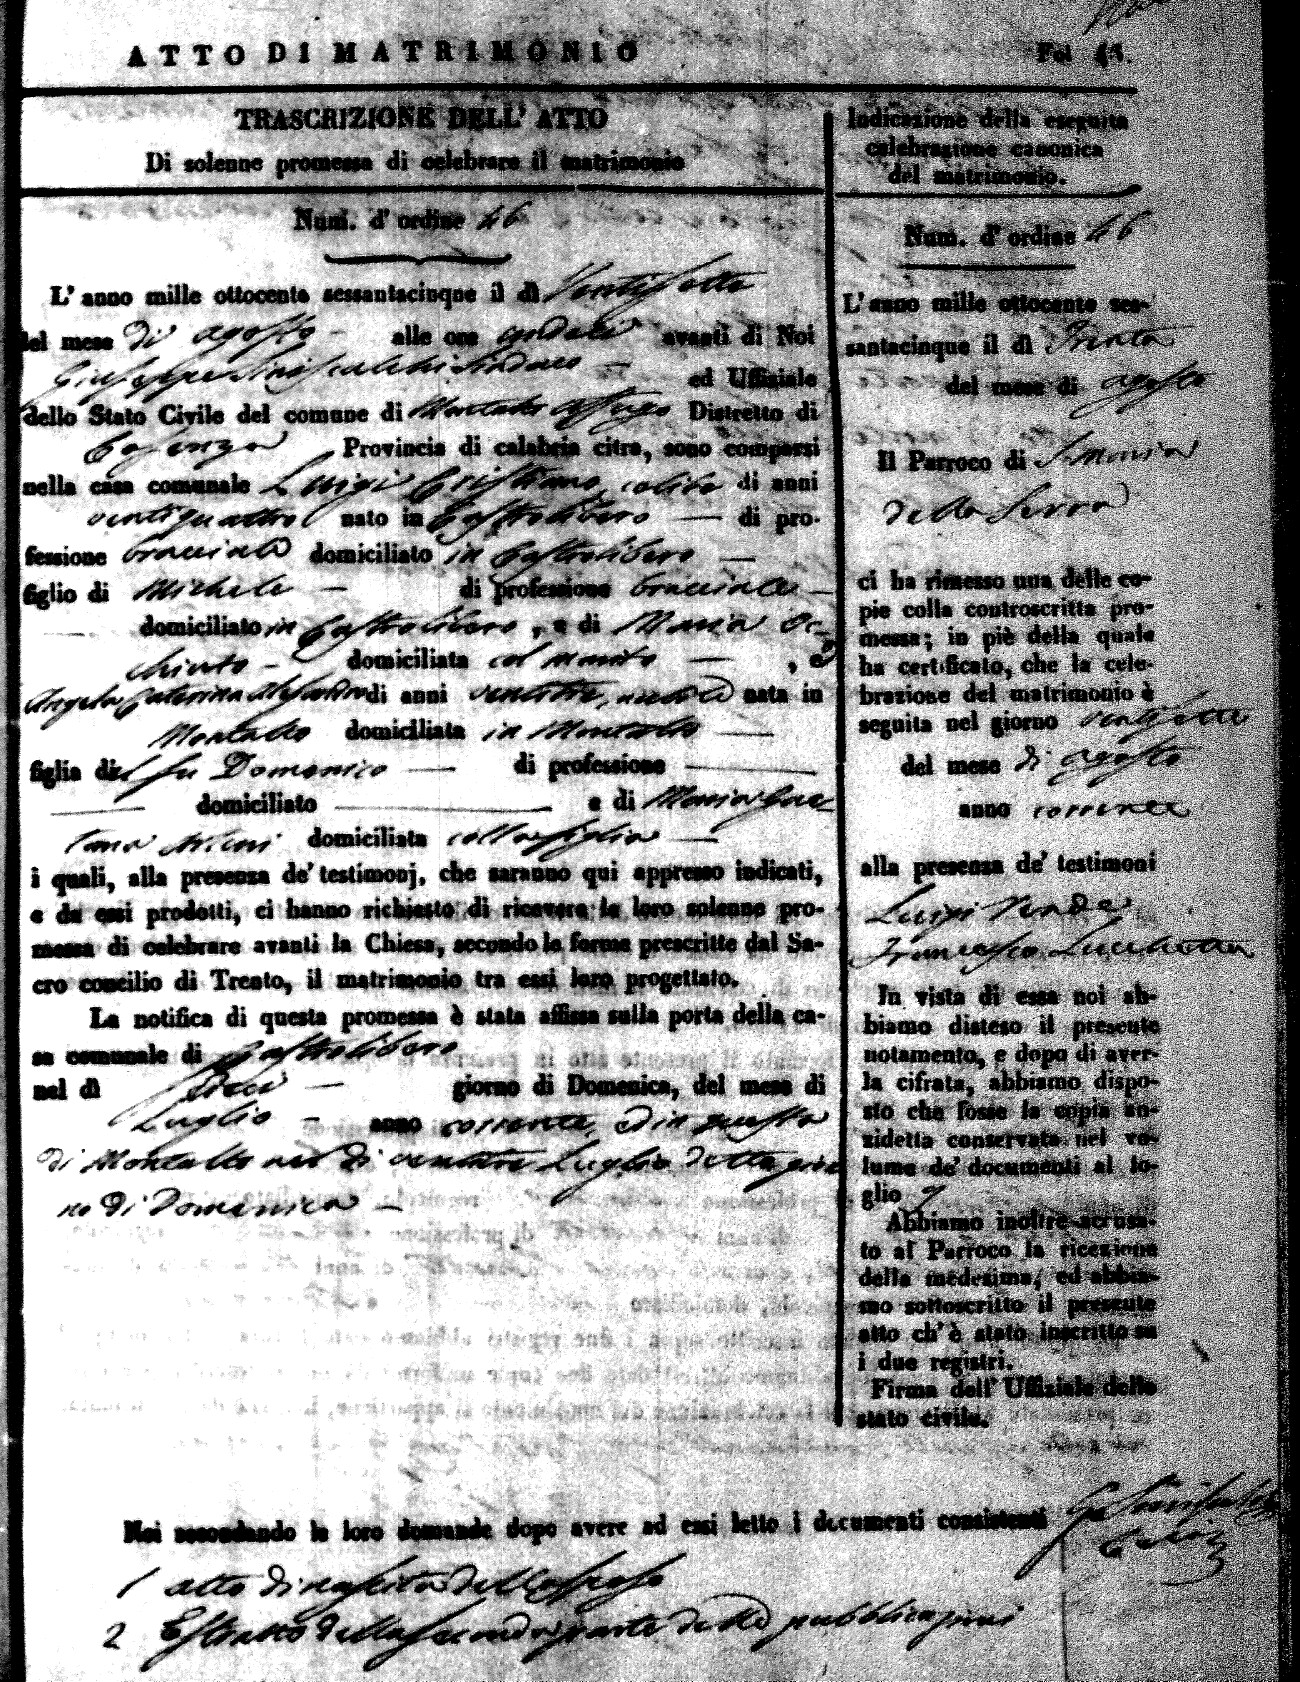 ATTO DI MATRIMONIO
Fol
TRASCRIZIONE DELL' ATTO
Di solenne promessa di celebrare il matrimonio
Num. d' ordine 46
L' anno mille ottocento sessantacinque il dì Ventisette
del mese di agosto alle ore undeci avanti di Noi
Giuseppe Siniscalchi Sindaco ed Uffiziale
dello Stato Civile del comune di Montalto Uffugo Distretto di
Cosenza Provincia di calabria citra, sono comparsi
nella casa comunale Luigi Cristiano celibe di anni
ventiquattro nato in Castrolibero di pro-
fessione bracciale domiciliato in Castrolibero
figlio di Michele di professione bracciale
domiciliato in Castrolibero, e di Maria Oc-
chiuto domiciliata col marito, e
Angela Caterina di anni ventitre, nubile nata in
Montalto domiciliata in Montalto
figlia del fu Domenico di professione
domiciliato e di Maria Gae
tana domiciliata colla figlia
i quali, alla presenza de' testimonj, che saranno qui appresso indicati,
e da essi prodotti, ci hanno richiesto di ricevere la loro solenne pro-
messa di celebrare avanti la Chiesa, secondo le forme prescritte dal Sa-
cro concilio di Trento, il matrimonio tra essi loro progettato.
La notifica di questa promessa è stata affissa sulla porta della ca-
sa comunale di Castrolibero
nel dì sedeci giorno di Domenica, del mese di
Luglio anno corrente, ed in questa
di Montalto nel dì ventitre Luglio detto gior
no di Domenica
Indicazione della eseguita
celebrazione canonica
del matrimonio.
Num. d' ordine 46
L' anno mille ottocento ses-
santacinque il dì Trenta
del mese di agosto
Il Parroco di S. Maria
della Serra
ci ha rimesso una delle co-
pie colla controscritta pro-
messa; in piè della quale
ha certificato, che la cele-
brazione del matrimonio è
seguita nel giorno ventisette
del mese di agosto
anno corrente
alla presenza de' testimoni
Luigi
Francesco
In vista di essa noi ab-
biamo disteso il presente
notamento, e dopo di aver-
la cifrata, abbiamo dispo-
sto che fosse la copia an-
zidetta conservata nel vo-
lume de' documenti al fo-
glio
Abbiamo inoltre accusa-
to al Parroco la ricezione
della medesima, ed abbia-
mo sottoscritto il presente
atto ch' è stato inscritto su
i due registri.
Firma dell' Uffiziale dello
stato civile.
Noi secondando le loro domande dopo avere ad essi letto i documenti consistenti
1 atto di nascita dello sposo
2 Estratto della seconda parte delle pubblicazioni